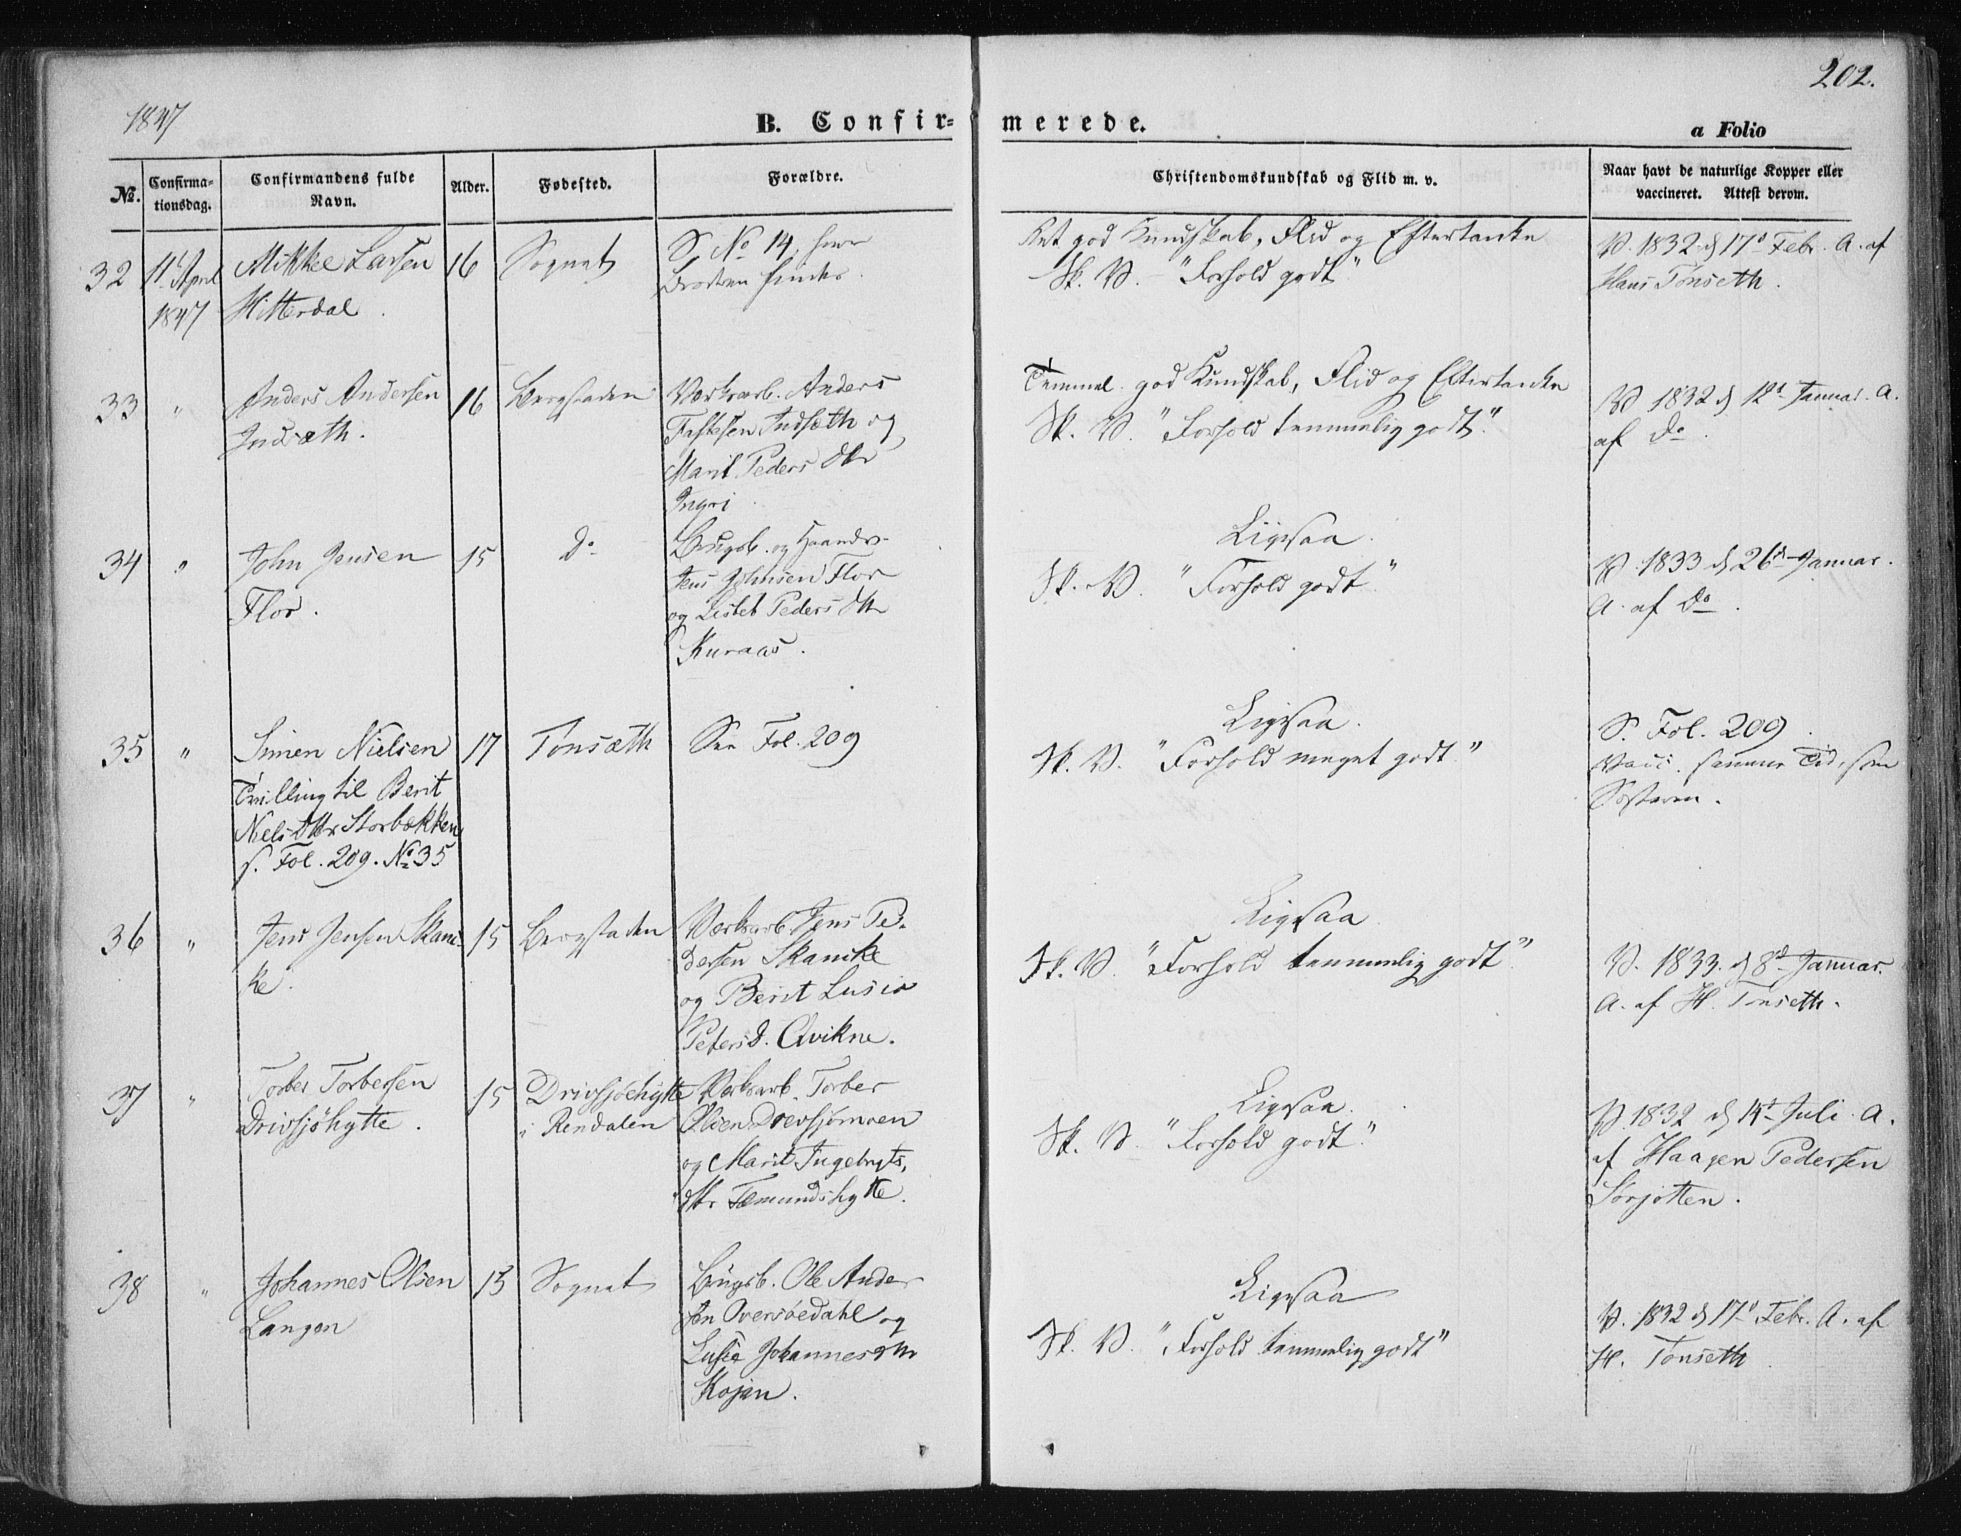 1847
202.
B. Confir-
merede.
a Folio
No.
Confirma-
tionsdag.
Confirmandens fulde
Navn.
Alder.
Fødested.
Forældre.
Christendomskundskab og Flid m. v.
Naar havt de naturlige Kopper eller
vaccineret. Attest derom.
32
11t April
1847
Mikkel Larsen
Hitterdal.
16
Sognet
S. No 14, hvor
Broderen findes.
god Kundskab, Flid og Eftertanke
Sk. V. - "Forhold godt."
V. 1832 d 17d Febr. A. af
Hans Tønseth.
33
"
Anders Andersen
Indsæth.
16
Bergstaden
Værksarb. Anders
Indsæth og
Marit Peders dtr
Ingri
Temmel. god Kundskab, Flid og Eftertanke
Sk. V. "Forhold temmelig godt."
V 1832 d 12t Januar. A.
af Do.
34
"
John Jensen
Flor.
15
Do
Brugsb. og Haandv.
Jens Johnsen Flor
og Lisbet Peders dtr
Kuraas.
Ligesaa.
Sk. V. "Forhold godt."
V. 1833 d 26d Januar.
A. af Do.
35
"
Simen Nielsen
Tvilling til Berit
Niels Dtr Storbækken
s. Fol. 209. No 35
17
Tonsæth
See Fol. 209
Ligesaa.
Sk. V. "Forhold meget godt."
S. Fol. 209.
Vacc. samme Tid, som
Søsteren.
36
"
Jens Jensen Skanc-
ke.
15
Bergstaden
Værksarb. Jens Pe-
dersen Skancke
og Berit Lusie
Peters d. Qvikne.
Ligesaa
Sk. V. "Forhold temmelig godt."
V. 1833. d 8d Januar.
A. af H. Tønseth.
37
"
Torber Torbersen
Drivsjöhytte.
15
Drivsjöehytte
i Rendalen
Værksarb. Torber
Olsen Drevsjømoen
og Marit Ingebrigts
dtr Fæmundshytte.
Ligesaa.
Sk. V. "Forhold godt."
V. 1832 d 14t Juli. A.
af Haagen Pedersen
Sørjotten.
38
"
Johannes Olsen
Langen
15
Sognet
Brugsb. Ole Ander-
sen Oversöedahl og
Lusie Johannes dtr
Kojen.
Ligesaa
Sk. V. "Forhold temmelig godt"
V. 1832 d 17d Febr. A. af
H. Tønseth.